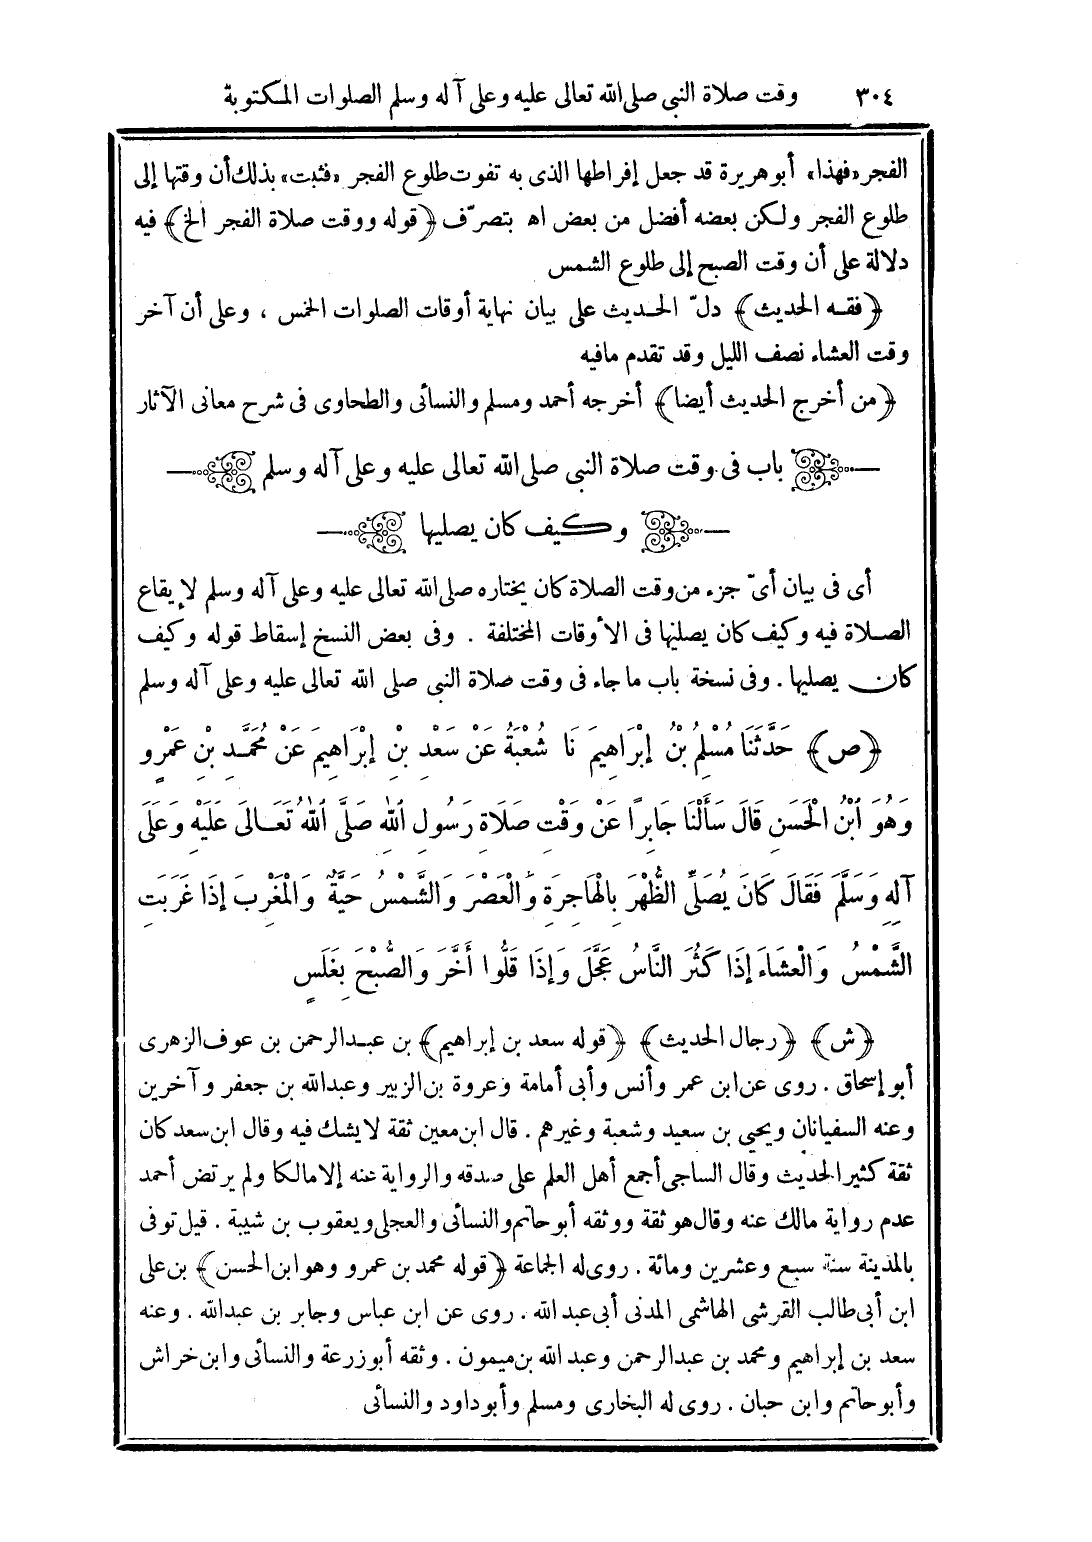 ٣٠٤ وقت صلاة النبى صلى الله تعالى عليه وعلى آله وسلم الصلوات المكتوبة
الفجر «فهذا» أبو هريرة قد جعل إفراطها الذى به تفوت طلوع الفجر «فثبت» بذلك أن وقتها إلى
طلوع الفجر ولكن بعضه أفضل من بعض اه بتصرّف ﴿قوله ووقت صلاة الفجر الخ﴾ فيه
دلالة على أن وقت الصبح إلى طلوع الشمس
﴿فقه الحديث﴾ دلّ الحديث على بيان نهاية أوقات الصلوات الخمس ، وعلى أن آخر
وقت العشاء نصف الليل وقد تقدم مافيه
﴿من أخرج الحديث أيضا﴾ أخرجه أحمد ومسلم والنسائى والطحاوى فى شرح معانى الآثار
باب فى وقت صلاة النبى صلى الله تعالى عليه وعلى آله وسلم
وكيف كان يصليها
أى فى بيان أىّ جزء من وقت الصلاة كان يختاره صلى الله تعالى عليه وعلى آله وسلم لإيقاع
الصلاة فيه وكيف كان يصليها فى الأوقات المختلفة . وفى بعض النسخ إسقاط قوله وكيف
كان يصليها . وفى نسخة باب ماجاء فى وقت صلاة النبى صلى الله تعالى عليه وعلى آله وسلم
﴿ص﴾ حَدَّثَنَا مُسْلِمُ بْنُ إِبْرَاهِيمَ نَا شُعْبَةُ عَنْ سَعْدِ بْنِ إِبْرَاهِيمَ عَنْ مُحَمَّدِ بْنِ عَمْرٍو
وَهُوَ ابْنُ الْحَسَنِ قَالَ سَأَلْنَا جَابِرًا عَنْ وَقْتِ صَلَاةِ رَسُولِ اللهِ صَلَّى اللهُ تَعَالَى عَلَيْهِ وَعَلَى
آلِهِ وَسَلَّمَ فَقَالَ كَانَ يُصَلِّى الظُّهْرَ بِالْهَاجِرَةِ وَالْعَصْرَ وَالشَّمْسُ حَيَّةٌ وَالْمَغْرِبَ إِذَا غَرَبَتِ
الشَّمْسُ وَالْعِشَاءَ إِذَا كَثُرَ النَّاسُ عَجَّلَ وَإِذَا قَلُّوا أَخَّرَ وَالصُّبْحَ بِغَلَسٍ
﴿ش﴾ ﴿رجال الحديث﴾ ﴿قوله سعد بن إبراهيم﴾ بن عبد الرحمن بن عوف الزهرى
أبو إسحاق . روى عن ابن عمر وأنس وأبى أمامة وعروة بن الزبير وعبد الله بن جعفر وآخرين
وعنه السفيانان ويحيى بن سعيد وشعبة وغيرهم . قال ابن معين ثقة لايشك فيه وقال ابن سعد كان
ثقة كثير الحديث وقال الساجى أجمع أهل العلم على صدقه والرواية عنه إلا مالكا ولم يرتض أحمد
عدم رواية مالك عنه وقال هو ثقة ووثقه أبو حاتم والنسائى والعجلى ويعقوب بن شيبة . قيل توفى
بالمدينة سنة سبع وعشرين ومائة . روى له الجماعة ﴿قوله محمد بن عمرو وهو ابن الحسن﴾ بن على
ابن أبى طالب القرشى الهاشمى المدنى أبى عبد الله . روى عن ابن عباس وجابر بن عبد الله . وعنه
سعد بن إبراهيم ومحمد بن عبد الرحمن وعبد الله بن ميمون . وثقه أبو زرعة والنسائى وابن خراش
وأبو حاتم وابن حبان . روى له البخارى ومسلم وأبو داود والنسائى